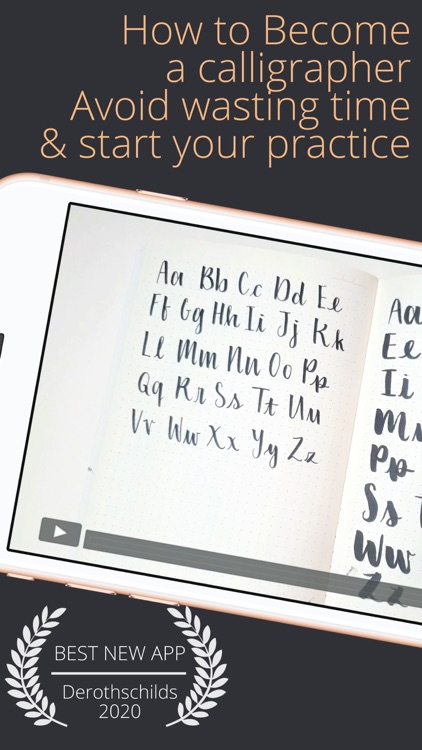 How to Become
a calligrapher
Avoid wasting time
& start your practice
Aa Bb Cc Dd Ee
Ff Gg Hh Ii Jj Kk
Ll Mm Nn Oo Pp
Qq Rr Ss Tt Uu
Vv Ww Xx Yy Zz
Aa
Ee
Ii
Mm
Pp
Ss T
Ww
Zz
BEST NEW APP
Derothschilds
2020